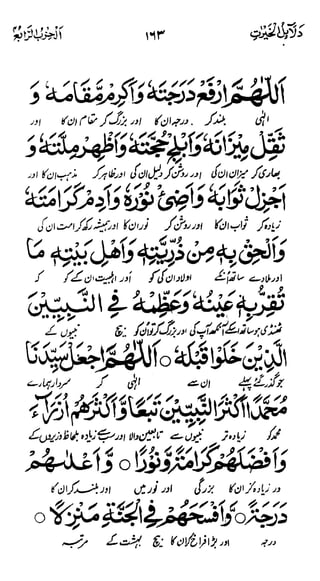 دلائل الخیرات ۱۶۳ الحزب الرابع
اَللّٰهُمَّ ارْفَعْ دَرَجَتَهٗ وَاَكْرِمْ مَّقَامَهٗ وَ
الٰہی بلند کر درجہ ان کا اور بزرگ کر مقام ان کا اور
ثَقِّلْ مِيْزَانَهٗ وَاَبْلِجْ حُجَّتَهٗ وَاَظْهِرْ مِلَّتَهٗ وَ
بھاری کر میزان ان کی اور روشن کر دلیل ان کی اور ظاہر کر مذہب ان کا اور
اَجْزِلْ ثَوَابَهٗ وَاَضِئْ نُوْرَهٗ وَاَدِمْ كَرَامَتَهٗ
زیادہ کر ثواب ان کا اور روشن کر نور ان کا اور ہمیشہ رکھ کرامت ان کی
وَاَلْحِقْ بِهٖ مِنْ ذُرِّيَّتِهٖ وَاَهْلِ بَيْتِهٖ مَا
اور ملا دے ساتھ انکے اولاد ان کی کو اور اہلبیت ان کے کو کہ
تُقِرُّ بِهٖ عَيْنَهٗ وَعَظِّمْهُ فِي النَّبِيِّيْنَ
ٹھنڈی ہو ساتھ اسکے آنکھ آپ کی اور بزرگ کر ان کو بیچ نبیوں کے
الَّذِيْنَ خَلَوْا قَبْلَهٗ ○ اَللّٰهُمَّ اجْعَلْ سَيِّدَنَا
جو گذر گئے پہلے ان سے الٰہی کر سردار ہمارے
مُحَمَّدًا اَكْثَرَ النَّبِيِّيْنَ تَبَعًا وَّاَكْثَرَهُمْ اُزَرَآءَ
محمد کو زیادہ تر نبیوں سے تابعین والا اور سب سے زیادہ بلحاظ وزیروں کے
وَاَفْضَلَهُمْ كَرَامَةً وَّنُوْرًا ○ وَّاَعْلَاهُمْ
ور زیادہ کر ان کا بزرگی اور نور میں اور بلند کر ان کا
دَرَجَةً ○ وَّاَفْسَحَهُمْ فِي الْجَنَّةِ مَنْزِلًا ○
درجہ اور بڑا فراخ کر ان کا بیچ بہشت کے مرتبہ